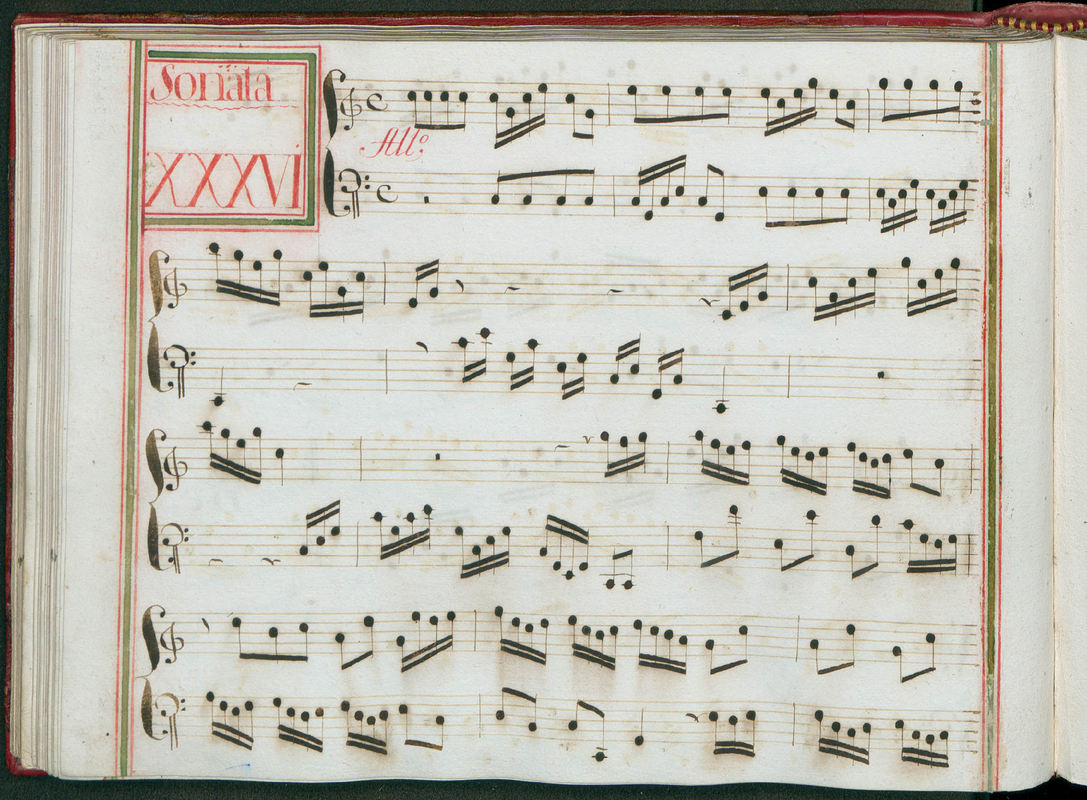 Sonata
XXXVI
All.º